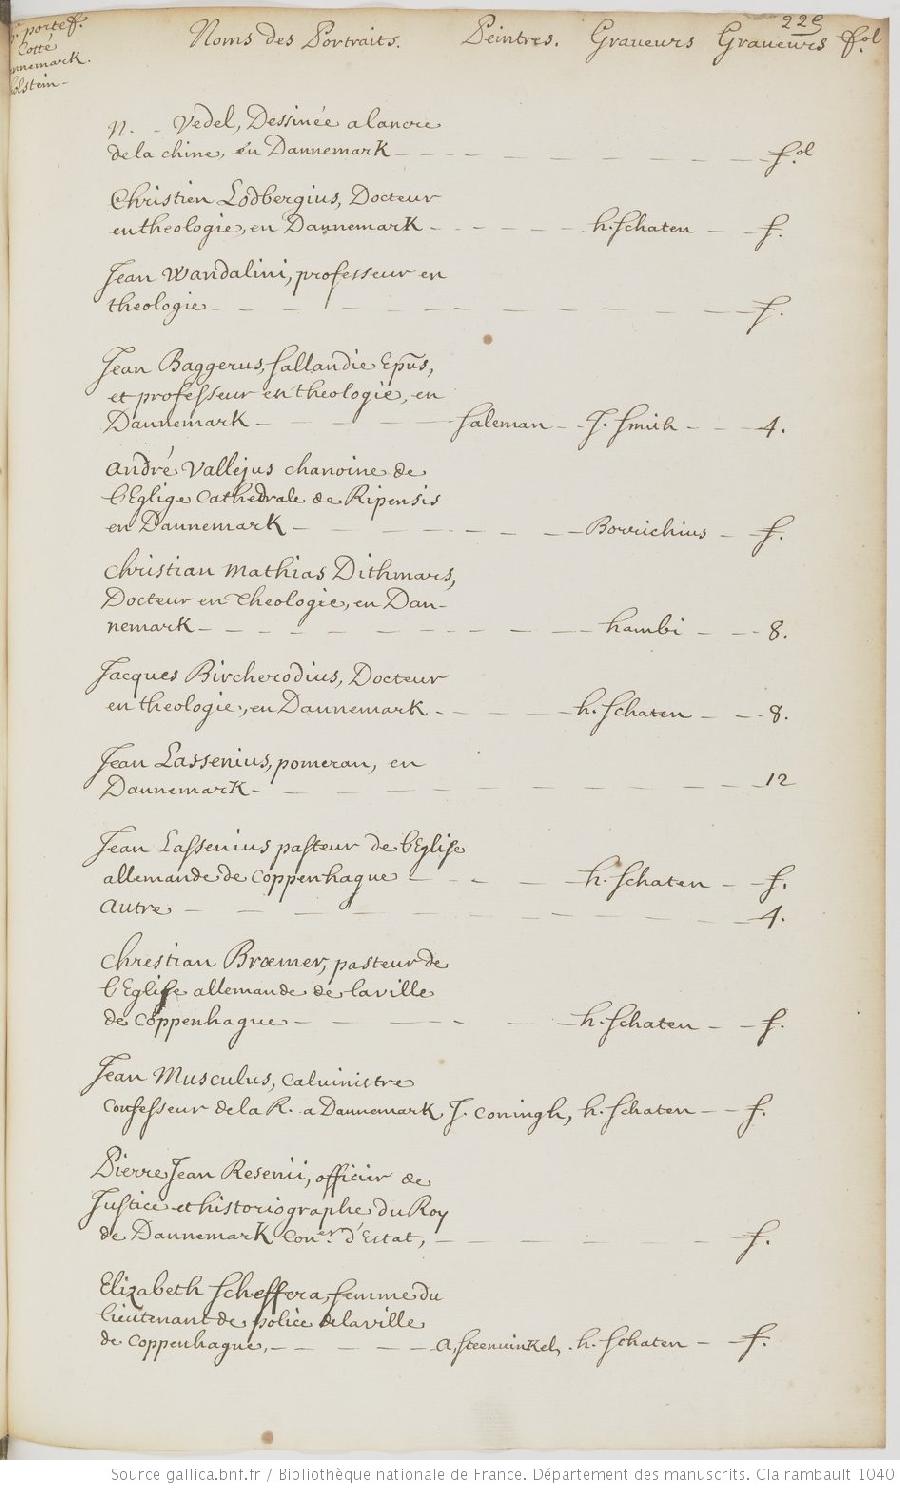 225
portef.
Cotté
nnemark.
olstein-
Noms des Portraits. Peintres. Graveurs Graveurs fol
N. - Vedel, Dessinée alancre
de la chine, en Dannemark - f.ol
Christien Lodbergius, Docteur
entheologie, en Dannemark - h. Schaten - f.
Jean Wandalini, professeur en
theologie - f.
Jean Baggerus, Sallandie Epũs,
et professeur en theologie, en
Dannemark - Saleman - J. Smith - 4.
André Vallejus chanoine de
l'Eglige Cathedrale de Ripensis
en Dannemark - Borrichius - f.
Christian Mathias Dithmars,
Docteur en Theologie, en Dan-
nemark - hambi - 8.
Jacques Bircherodius, Docteur
en theologie, en Dannemark - h. Schaten - 8.
Jean Lassenius, pomeran, en
Dannemark - 12
Jean Lassenius pasteur de l'Eglise
allemande de Coppenhague - h. Schaten - f.
Autre - 4.
Chrestian Bræmer, pasteur de
l'Eglise allemande de la ville
de Coppenhague - h. Schaten - f.
Jean Musculus, Calvinistre
Confesseur de la R. a Dannemark J. Coningh, h. Schaten - f.
Pierre Jean Resenii, officier de
Justice et historiographe du Roy
de Dannemark Con.er d'Estat, - f.
Elizabeth Scheffera, femme du
lieutenant de police de la ville
de Coppenhague, - A, Steenwinkel, h. Schaten - f.
Source gallica.bnf.fr / Bibliothèque nationale de France. Département des manuscrits. Clairambault 1040